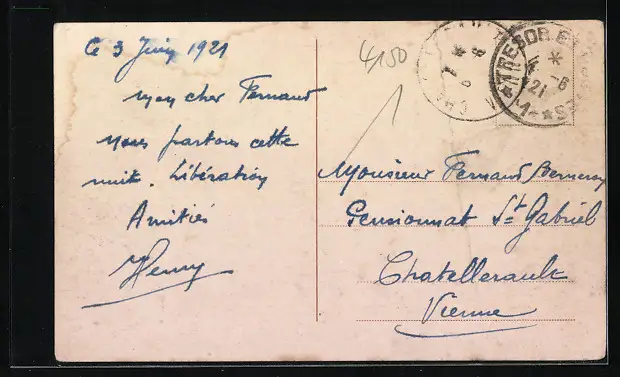 Le 3 Juin 1921
Mon cher Fernand
nous partons cette
nuit. Libération
Amitiés
Henry
4/150
TRESOR. ET
* 4 -6 21
Monsieur Fernand
Pensionnat St Gabriel
Chatellerault
Vienne